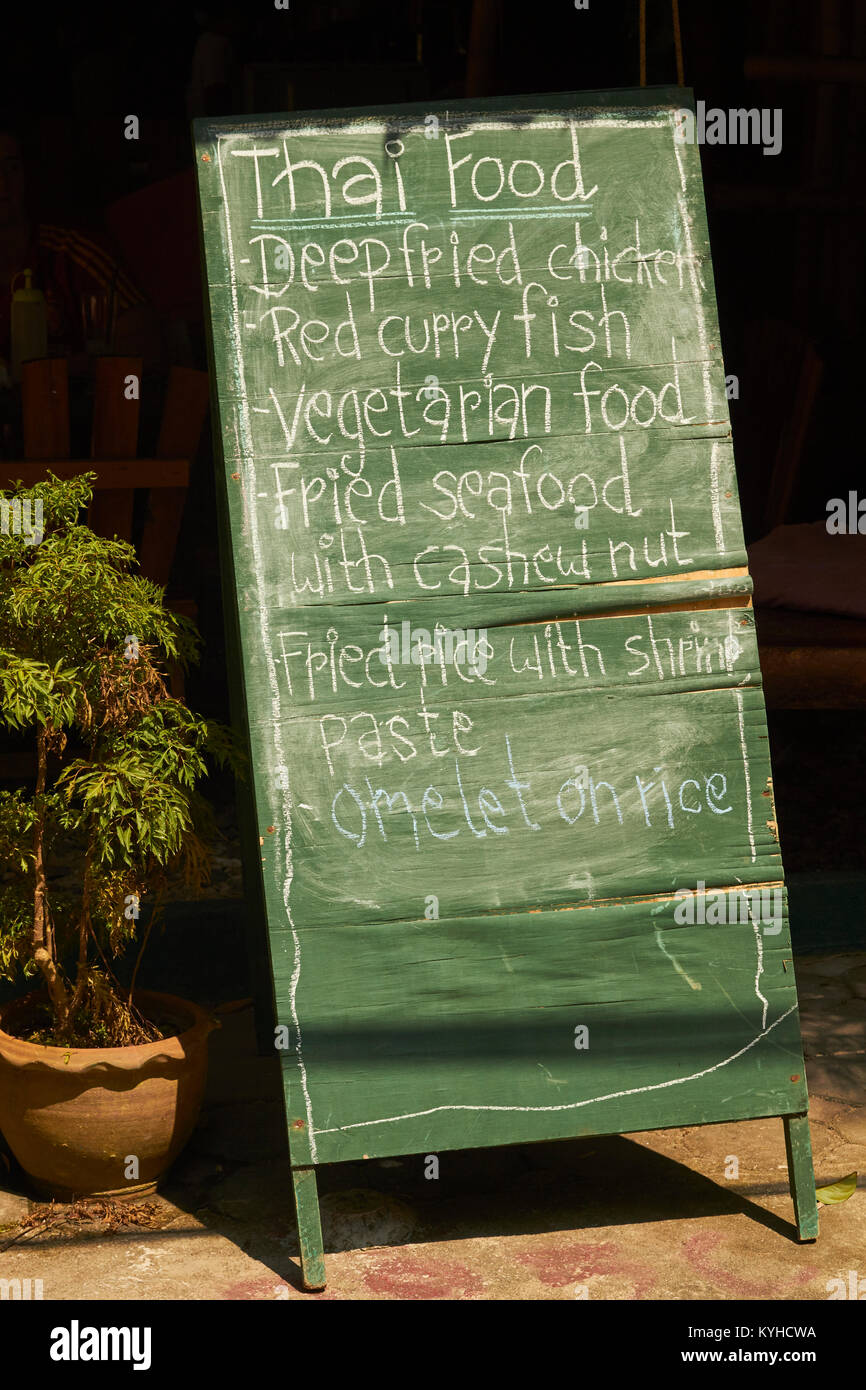 Thai Food
- Deep fried chicken
- Red curry fish
- Vegetarian food
- Fried seafood
with cashew nut
- Fried rice with shrimp
paste
omelet on rice
alamy
Image ID: KYHCWA
www.alamy.com